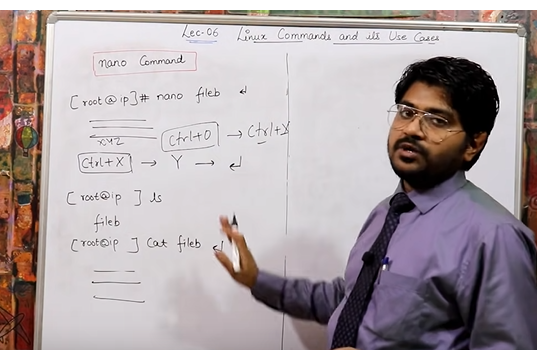 Lec-06 Linux Commands and its Use Cases
nano Command
[root@ip]# nano fileb ↵
xyz
Ctrl+O → Ctrl+X
Ctrl+X → Y → ↵
[root@ip ] ls
fileb
[root@ip ] Cat fileb ↵